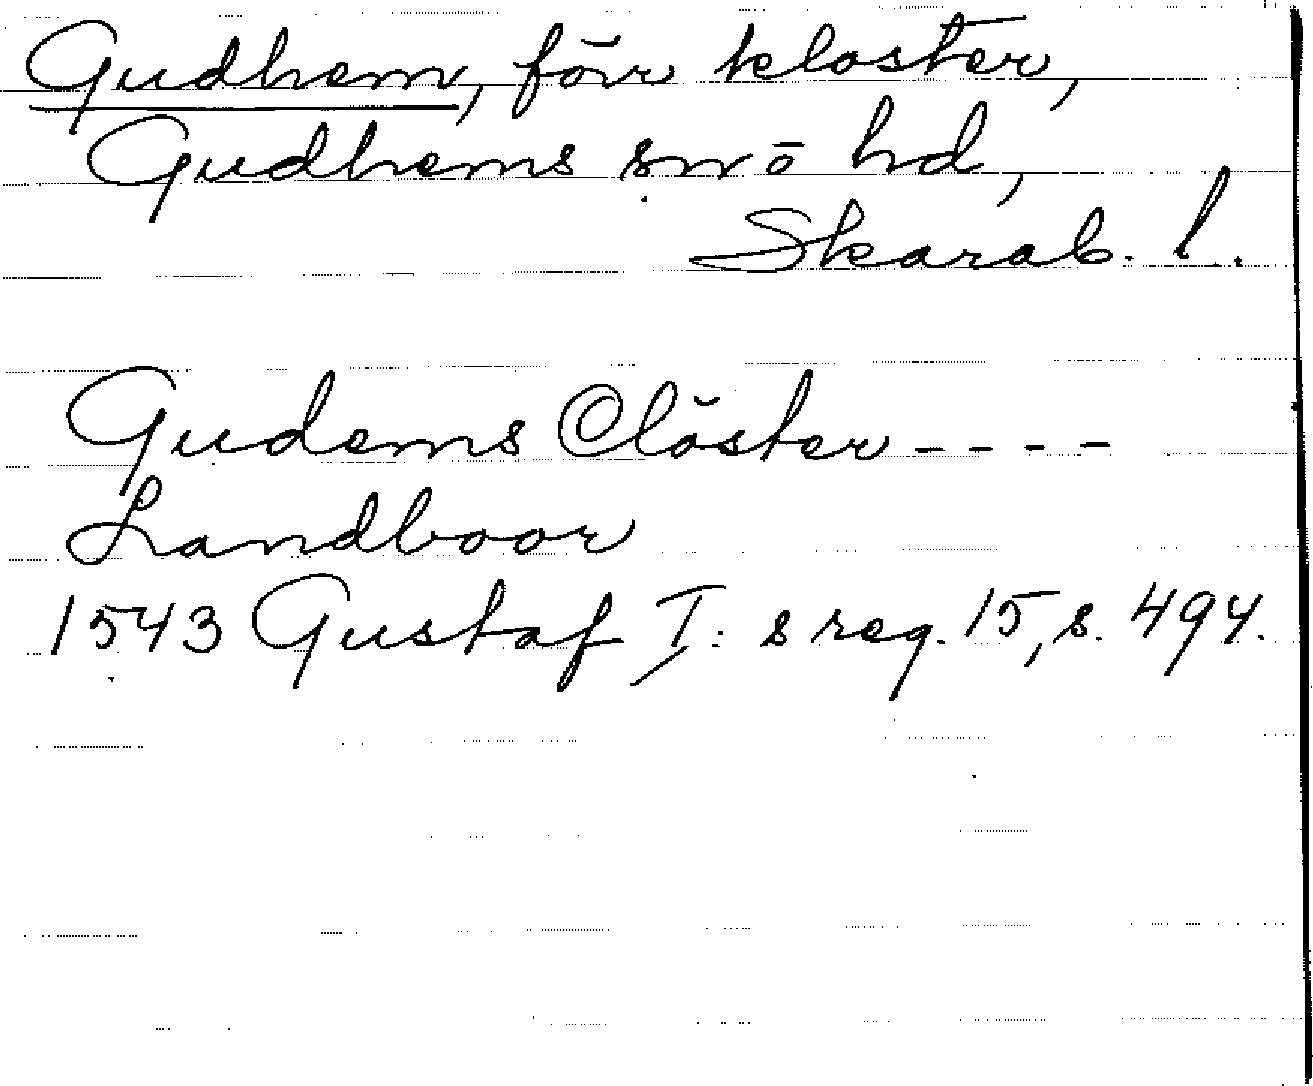 Gudhem, förr kloster,
Gudhems sn o hd,
Skarab. l.
Gudems Clöster - - - -
Landboor
1543 Gustaf I: s reg. 15, s. 494.